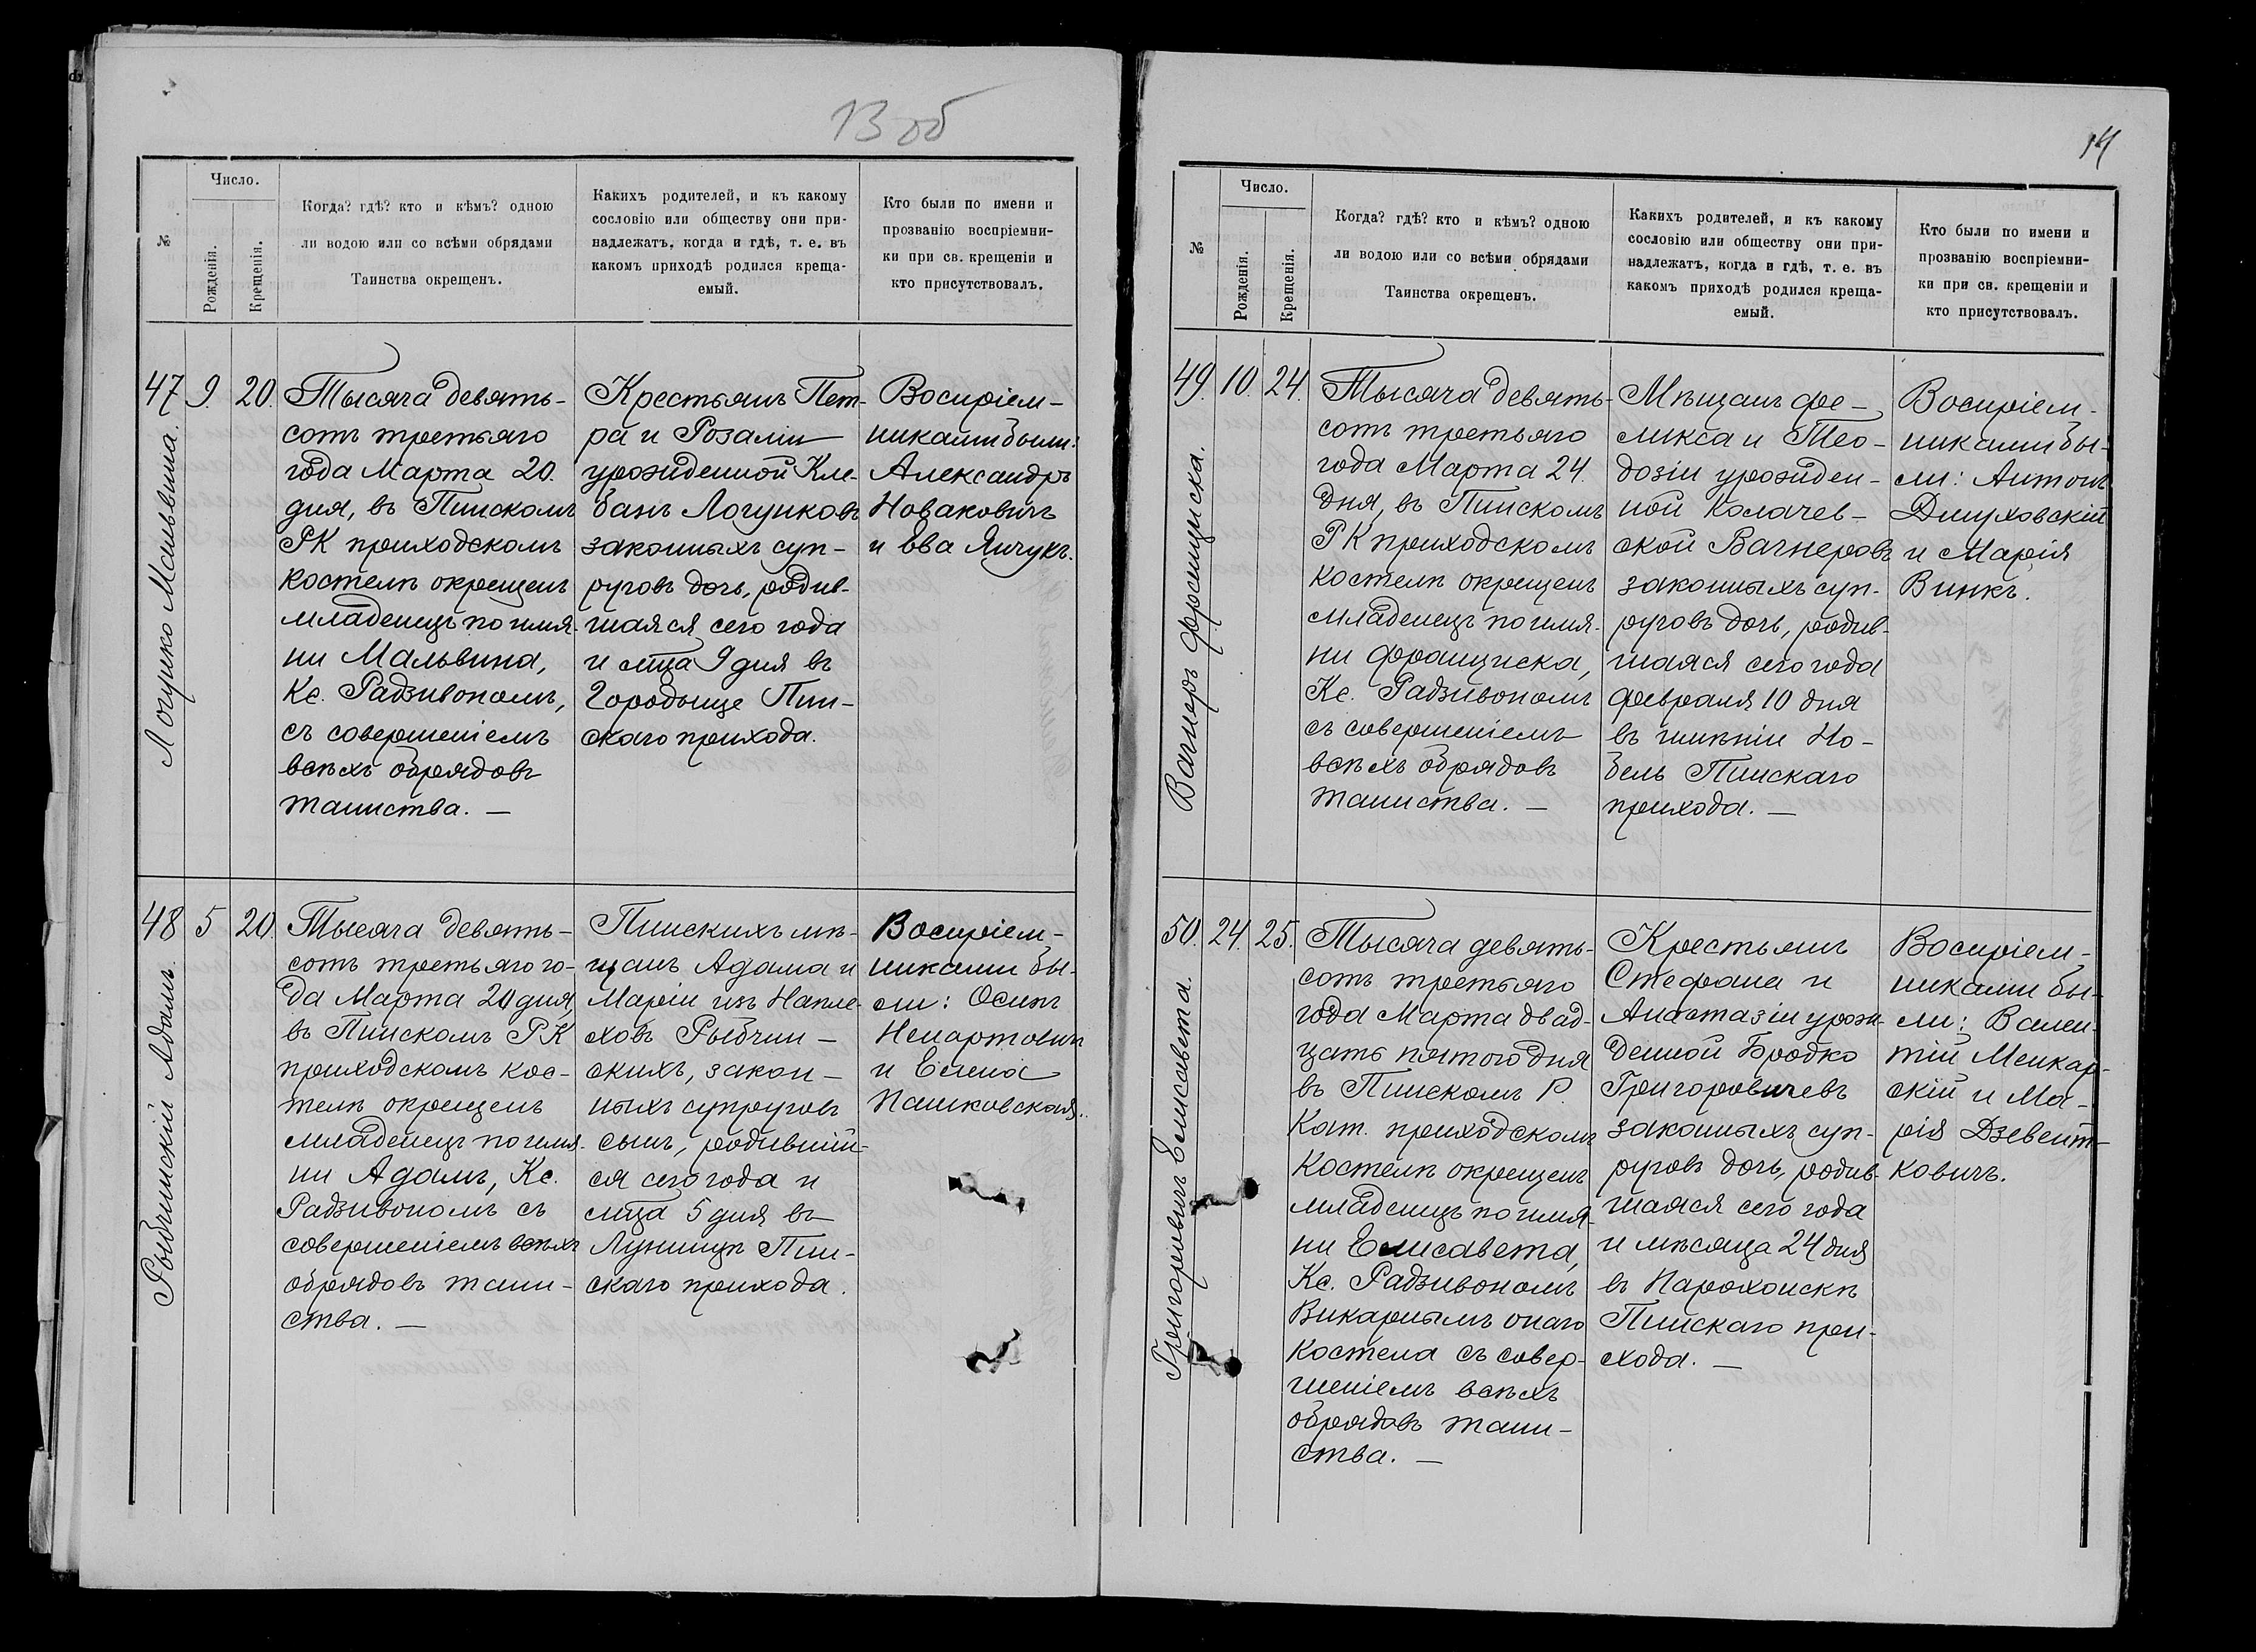 13 об
№
Число.
Рожденія.
Крещенія.
Когда? гдѣ? кто и кѣмъ? одною
ли водою или со всѣми обрядами
Таинства окрещенъ.
Какихъ родителей, и къ какому
сословію или обществу они при-
надлежатъ, когда и гдѣ, т. е. въ
какомъ приходѣ родился креща-
емый.
Кто были по имени и
прозванію воспріемни-
ки при св. крещеніи и
кто присутствовалъ.
47 9. 20.
Логушко Мальвина.
Тысяча девять-
сотъ третьяго
года Марта 20.
дня, въ Пинскомъ
РК приходскомъ
костелѣ окрещенъ
младенецъ по имя-
ни Мальвина,
Кс. Радзивономъ,
съ совершеніемъ
всѣхъ обрядовъ
таинства. —
Крестьянъ Пет-
ра и Розаліи
урожденной Кле-
банъ Логушковъ
законныхъ суп-
руговъ дочь, родив-
шаяся сего года
и мѣца 9 дня въ
Городыще Пин-
скаго прихода.
Воспріем-
никами были:
Александръ
Новаковичъ
и Ева Янчукъ.
48 5 20.
Рыбчинскій Адамъ.
Тысяча девять-
сотъ третьяго го-
да Марта 20 дня,
въ Пинскомъ РК
приходскомъ кос-
телѣ окрещенъ
младенецъ по имя-
ни Адамъ, Кс.
Радзивономъ съ
совершеніемъ всѣхъ
обрядовъ таин-
ства. —
Пинскихъ мѣ-
щанъ Адама и
Маріи изъ
Рыбчин-
скихъ, закон-
ныхъ супруговъ
сынъ, родившій-
ся сего года и
мѣца 5 дня въ
Лунинцѣ Пин-
скаго прихода.
Воспріем-
никами бы-
ли: Осипъ
Ненартовичъ
и Елена
Пашковская.
14
№
Число.
Рожденія.
Крещенія.
Когда? гдѣ? кто и кѣмъ? одною
ли водою или со всѣми обрядами
Таинства окрещенъ.
Какихъ родителей, и къ какому
сословію или обществу они при-
надлежатъ, когда и гдѣ, т. е. въ
какомъ приходѣ родился креща-
емый.
Кто были по имени и
прозванію воспріемни-
ки при св. крещеніи и
кто присутствовалъ.
49. 10. 24.
Вагнеръ Франциска.
Тысяча девять-
сотъ третьяго
года Марта 24.
дня, въ Пинскомъ
РК приходскомъ
костелѣ окрещенъ
младенецъ по имя-
ни Франциска,
Кс. Радзивономъ
съ совершеніемъ
всѣхъ обрядовъ
таинства. —
Мѣщанъ Фе-
ликса и Тео-
дозіи урожден-
ной Колачев-
ской Вагнеровъ
законныхъ суп-
руговъ дочь, родив-
шаяся сего года
Февраля 10 дня
въ имѣніи Но-
бель Пинскаго
прихода. —
Воспріем-
никами бы-
ли: Антонъ
Дмуховскій
и Марія
Винкъ.
50. 24. 25.
Григоровичъ Елисавета.
Тысяча девять-
сотъ третьяго
года Марта двад-
цать пятого дня
въ Пинскомъ Р.
Кат. приходскомъ
костелѣ окрещенъ
младенецъ по имя-
ни Елисавета,
Кс. Радзивономъ
Викарнымъ онаго
костела съ совер-
шеніемъ всѣхъ
обрядовъ таин-
ства. —
Крестьянъ
Стефана и
Анастазіи урож-
денной Бродко
Григоровичевъ
законныхъ суп-
руговъ дочь, родив-
шаяся сего года
и мѣсяца 24 дня
въ Парохонскѣ
Пинскаго при-
хода. —
Воспріем-
никами бы-
ли: Вален-
тій Менкар-
скій и Ма-
рія Дзевент-
ковичъ.